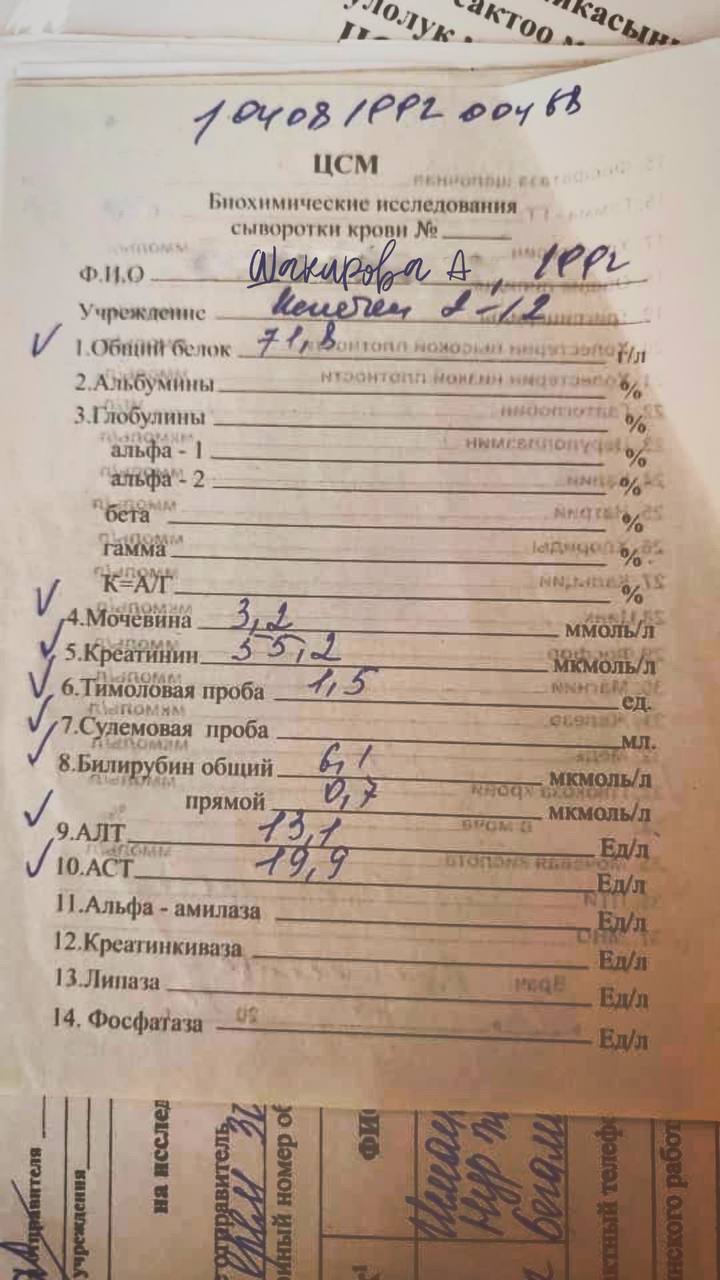 икасыны
сактоо м
улолук
1 0408 1992 00468
ЦСМ
Биохимические исследования
сыворотки крови №
Ф.И.О Шакирова А, 1992
Учреждение 2-12
1.Общий белок 71,8 г/л
2.Альбумины %
3.Глобулины %
альфа - 1 %
альфа - 2 %
бета %
гамма %
К=А/Г %
4.Мочевина 3,2 ммоль/л
5.Креатинин 55,2 мкмоль/л
6.Тимоловая проба 1,5 ед.
7.Сулемовая проба мл.
8.Билирубин общий 6,1 мкмоль/л
прямой 0,7 мкмоль/л
9.АЛТ 13,1 Ед/л
10.АСТ 19,9 Ед/л
11.Альфа - амилаза Ед/л
12.Креатинкиваза Ед/л
13.Липаза Ед/л
14. Фосфатаза Ед/л
правителя
учреждения
на исслед
отправитель
ный номер об
ФИО
Нур
Бегам
ктный телефо
нского работ